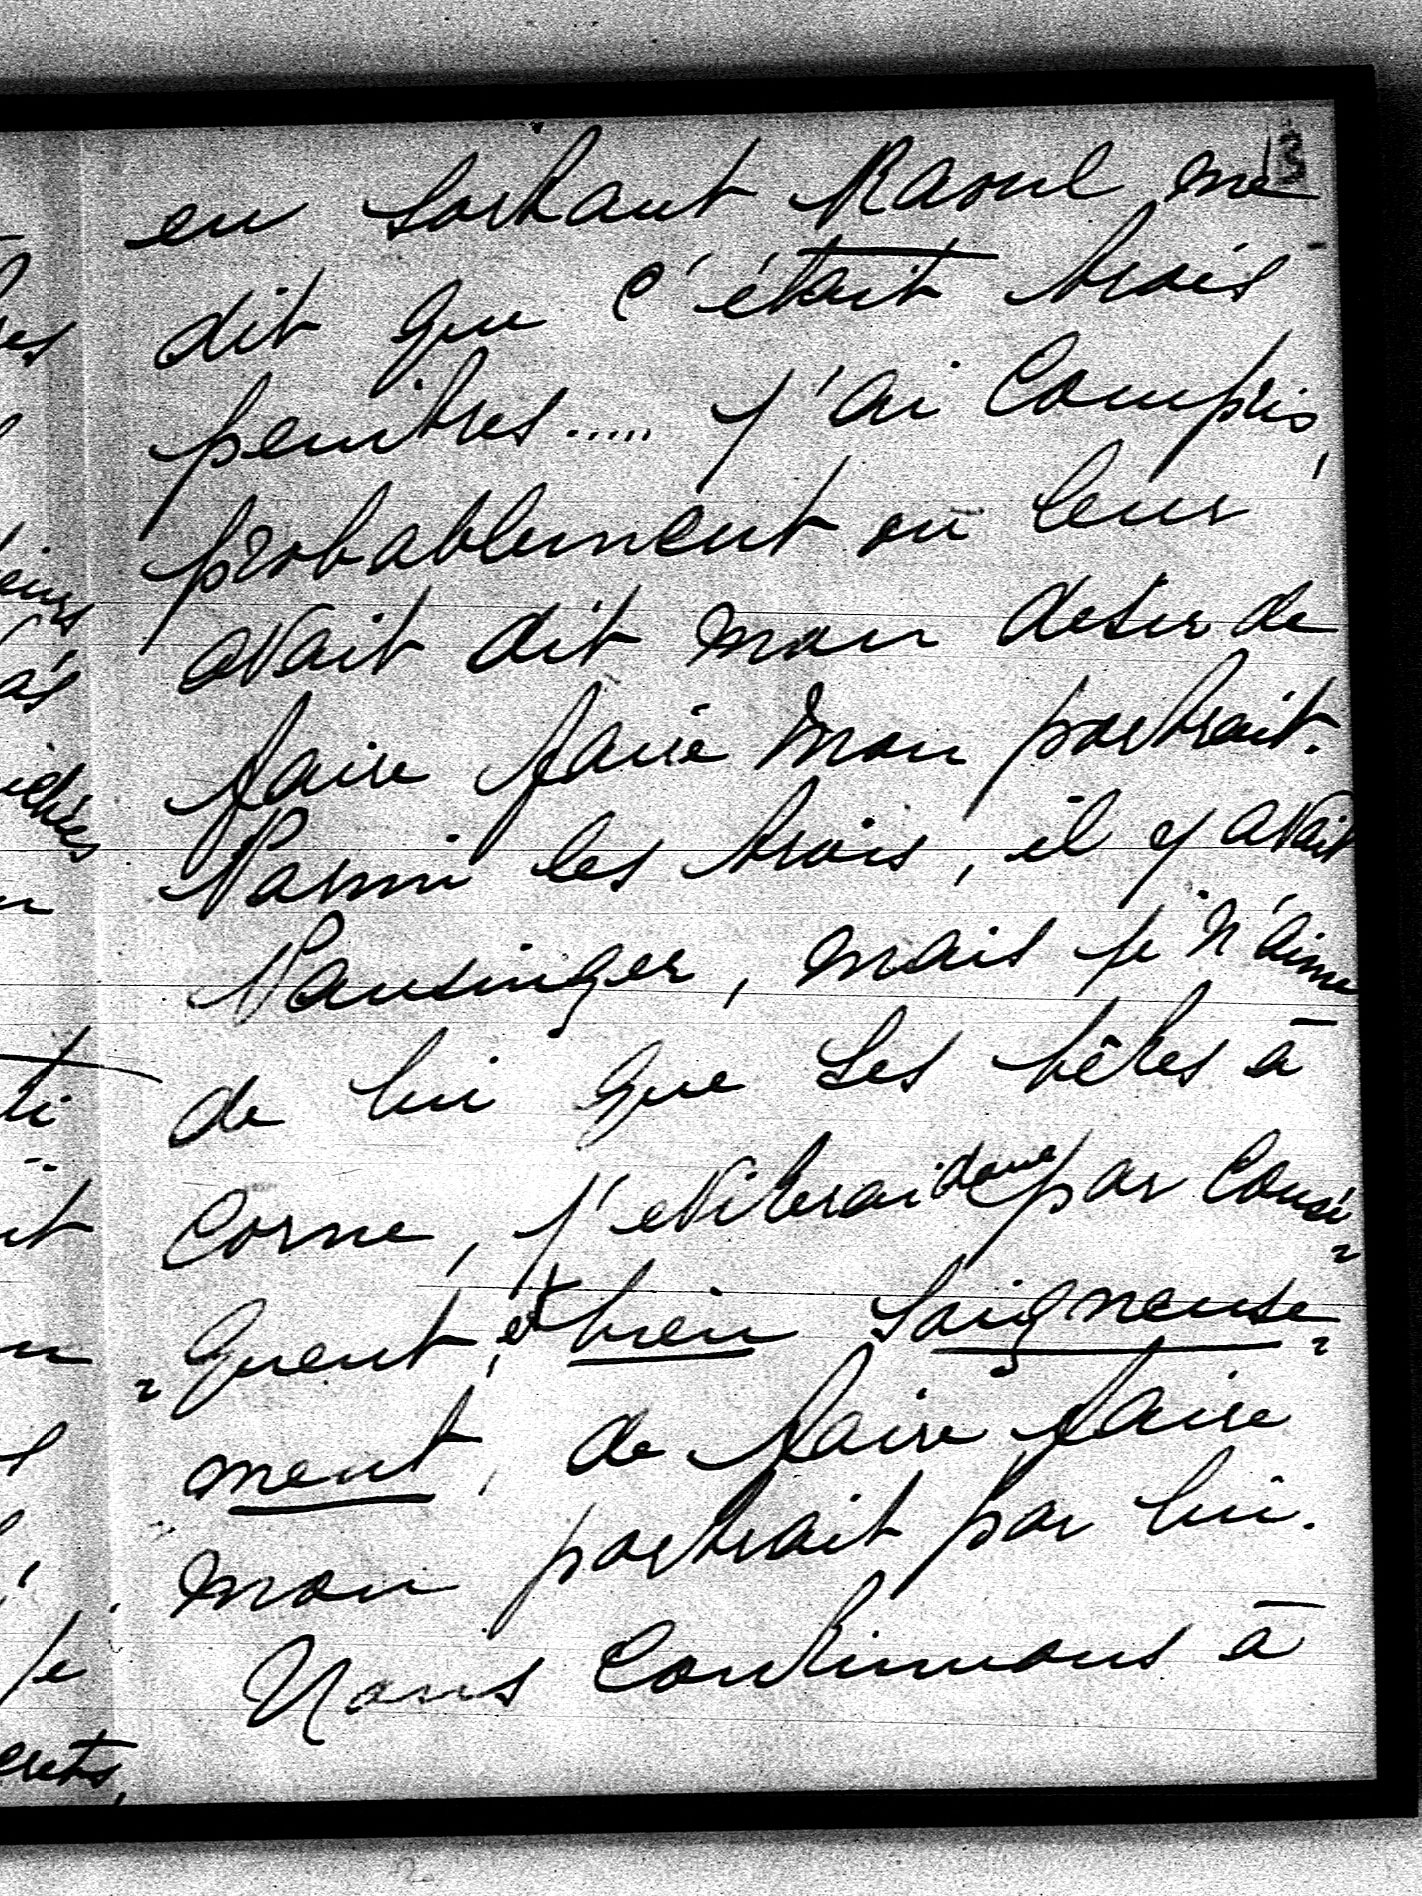 13
en sortant Raoul me
dit que c'était trois
peintres..... j'ai compris,
probablement on leur
avait dit mon desir de
faire faire mon portrait.
Parmi les trois, il y avait
Pausinger, mais je n'aime
de lui que ses bêtes à
corne, j'eviterai donc par consé=
=quent, et bien soigneuse=
ment, de faire faire
mon portrait par lui.
Nous continuons à